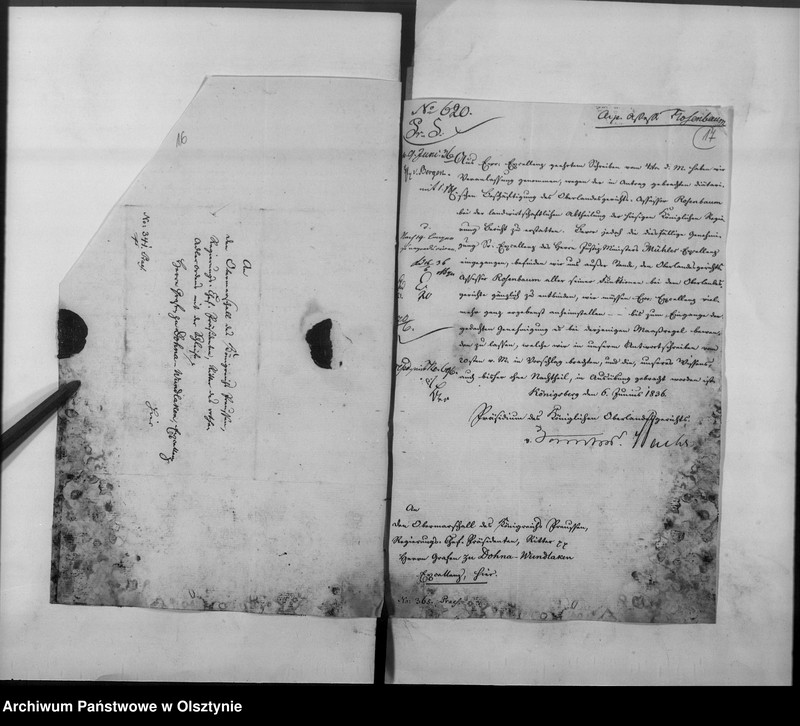 16
No: 341. Praes.
An
den Obermarschall des Königreichs Preußen,
Regierungs-Chef-Präsidenten, Ritter des rothen
Adlerordens mit der Schleife,
Herrn Grafen zu Dohna-Wundlaken, Excellenz
hier
No 620.
Pr. S.
Assess Rosenbaum
17
Aus Ewr. Excellenz geehrtem Schreiben vom d. M. haben wir
Veranlassung genommen, wegen der in Antrag gebrachten diätari-
schen Beschäftigung des Oberlandesgerichts-Assessor Rosenbaum
bei der landwirthschaftlichen Abtheilung der hiesigen Königlichen Regie-
rung Bericht zu erstatten. Bevor jedoch die diesfällige Genehmi-
gung Sr. Excellenz des Herrn Justiz-Ministers Mühler Excellenz
eingegangen, befinden wir uns außer Stande, den Oberlandesgerichts-
Assessor Rosenbaum aller seiner Functionen bei dem Oberlandes-
gerichte gänzlich zu entbinden, wir müssen Ew. Excellenz viel-
mehr ganz ergebenst anheimstellen – bis zum Eingange der
gedachten Genehmigung es bei derjenigen Maasregel bewen-
den zu lassen, welche wir in unserm Antwortschreiben vom
20sten v. M. in Vorschlag brachten, und die, unseres Wissens
auch bisher ohne Nachtheil, in Ausübung gebracht worden ist.
Königsberg den 6. Junius 1836.
Präsidium des Königlichen Oberlandesgerichts.
An
den Obermarschall des Königreichs Preussen,
Regierungs-Chef-Präsidenten, Ritter
Herrn Grafen zu Dohna-Wundlaken
Excellenz, hier.
No: 368. Praes.
Archiwum Państwowe w Olsztynie